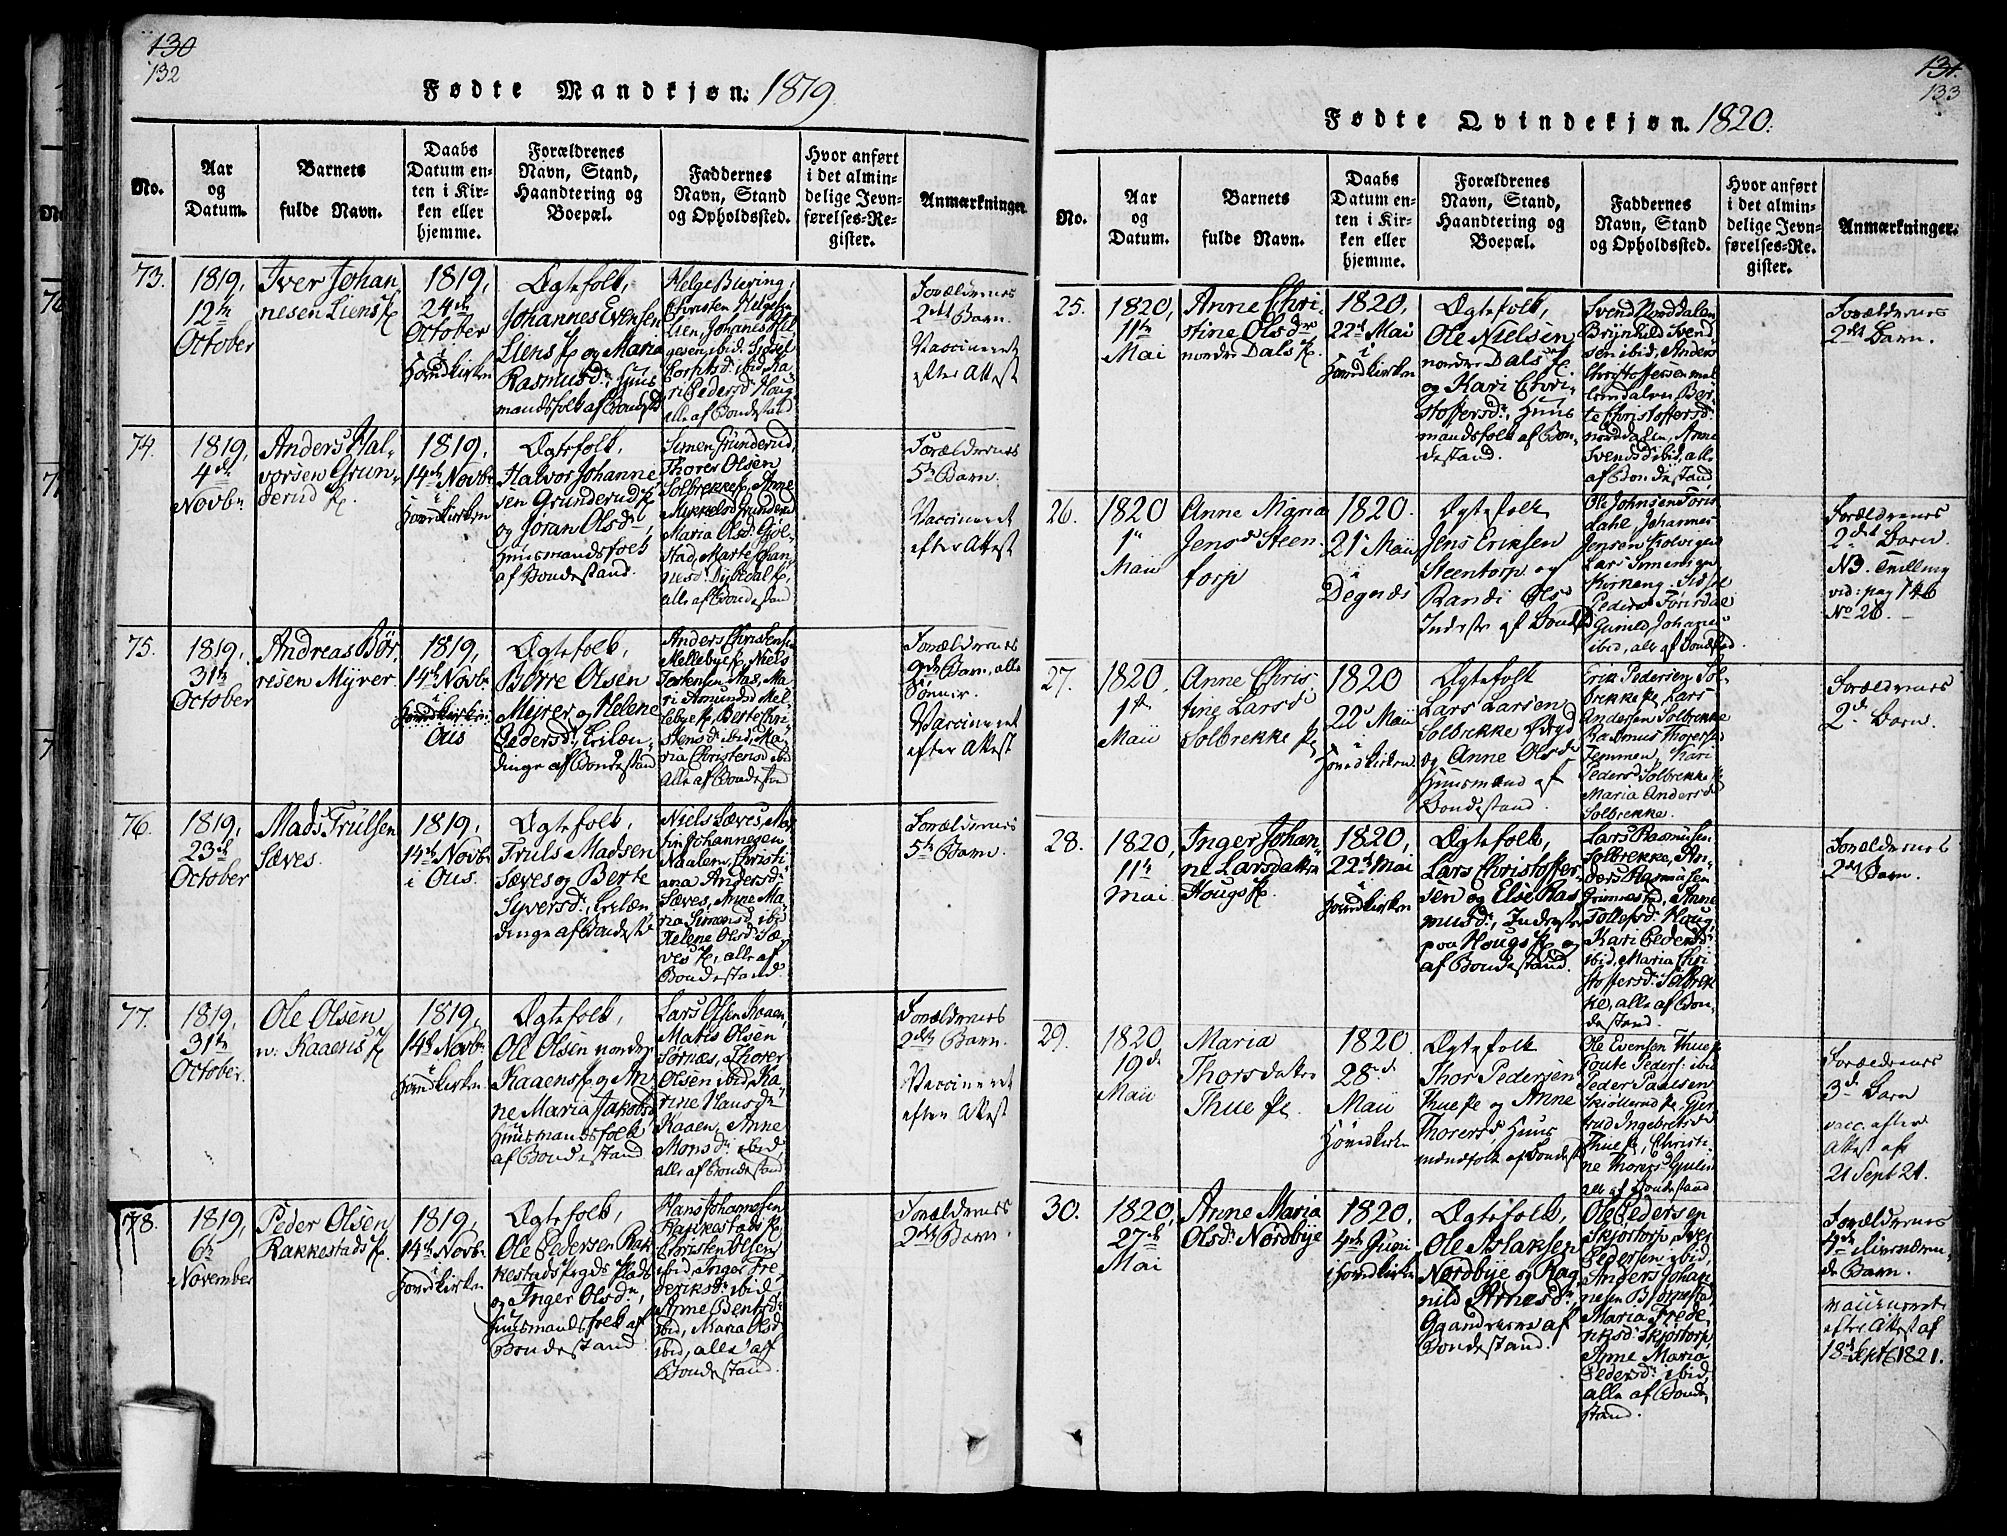 130
132
Fødte Mandkjøn. 1819.
No.
Aar
og
Datum.
Barnets
fulde Navn.
Daabs
Datum en-
ten i Kir-
ken eller
hjemme.
Forældrenes
Navn, Stand,
Haandtering og
Boepæl.
Faddernes
Navn, Stand
og Opholdssted.
Hvor anført
i det almin-
delige Jevn-
førelses-Re-
gister.
Anmærkninger.
73.
1819,
12te
October
Iver Johan
nesen Liens
1819,
24de
October
i
Hovedkirken
Ægtefolk,
Johannes Evensen
Liens og Maria
Rasmusd:, Huus
mandsfolk af Bondest
Helge Buring,
Christen Helgesen
Lien, Johanes Hel
gesen ibid:
ibid, Ka-
ri Pedersd: Houg
alle af Bondestand
Forældrenes
2det Barn.
Vaccineret
efter Attest
74.
1819,
4de
Novbr
Anders Hal-
vorsen Grun-
derud
1819,
14de Novbr
i
Hovedkirken
Ægtefolk,
Halvor Johanne
sen Grunderuds
og Jøran Olsd:,
Huusmandsfolk
af Bondestand.
Simen Grunderud,
Thorer Olsen
Solbrekke, Anne
Mikkelsd Grunderud
Maria Olsd: Gjøl-
stad, Marte Johan
nesd: Dybedal,
alle af Bondestand
Forældrenes
5te Barn.
Vaccineret
efter Attest
75.
1819,
31te
October
Andreas Bør-
resen Myrer
1819,
14de Novbr.
i
Hovedkirken
Ous
Ægtefolk,
Børre Olsen
Myrer og Helene
Pedersd:, Leilæn-
dinge af Bondestand
Anders Christensen
Mellebye, Niels
Torkensen Aas, Ma-
ri Amundsd Mel-
lebye, Berte Chri-
stensd: ibid, Ma-
ria Christensd ibid
Alle af Bondestand
Forældrenes
9de Barn, alle
Sønner.
Vaccineret
efter Attest
76.
1819,
23de
October
Mads Trulsen
Sæves.
1819,
14de Novbr
i Ous.
Ægtefolk,
Truls Madsen
Sæves og Berte
Syversd:, Leilæn
dinge af Bondest
Niels Sæves, Mor
tin Johannesen
Naalem, Christi
ana Andersd:
Sæves, Anne Ma-
ria Simensd ibid
Helene Olsd: Sæ
ves, alle af
Bondestand.
Forældrenes
5te Barn.
77.
1819,
31te
October.
Ole Olsen
n: Kaaens
1819,
14de Novbr.
i
Hovedkirken
Ægtefolk,
Ole Olsen nordre
Kaaens og An
ne Maria Jakobsd
Huusmandsfolk
af Bondestand
Lars Olsen Kaaen,
Matis Olsen
Sornæs, Thorer
Olsen ibid, Ka-
rine Hansd:
Kaaen, Anne
Monsd: ibid,
alle af Bondestand
Forældrenes
2det Barn.
Vaccineret
efter Attest
78.
1819,
6te
November
Peder Olsen
Rakkestads
1819,
14de Novbr
i
Hovedkirken
Ægtefolk,
Ole Pedersen Rak
kestads Plads
og Inger Olsd:,
Huusmandsfolk af
Bondestand
Hans Johannesen
Rakkestads
Christen Olsen
ibid, Inger Fre
deriksd: ibid
Anne Bentsd:
ibid, Maria Olsd
ibid, alle af
Bondestand.
Forældrenes
2det Barn.
131.
133
Fødte Qvindekjøn. 1820.
No.
Aar
og
Datum.
Barnets
fulde Navn.
Daabs
Datum en-
ten i Kir-
ken eller
hjemme.
Forældrenes
Navn, Stand,
Haandtering og
Boepæl.
Faddernes
Navn, Stand
og Opholdssted.
Hvor anført
i det almin-
delige Jevn-
førelses-Re-
gister.
Anmærkninger.
25.
1820,
11te
Mai
Anne Chri-
stine Olsd
nordre Dals
1820,
22de Mai
i
Hovedkirken
Ægtefolk,
Ole Nielsen
nordre Dals
og Kari Chri-
stoffersd:, Huus
mandsfolk af Bon-
destand.
Svend Norddalen
Brynhild Svend
sen ibid, Anders
Christoffersen mel
lemdalen, Ber-
te Christoffersd:
norddalen, Anne
Svensd ibid, alle
af Bondestand
Forældrenes
2det Barn.
26.
1820
1
Maii
Anne Maria
Jensd Steen
torp
1820.
21 Maii
i
Degnæs
Ægtefolk
Jens Eriksen
Steentorp og
Randi Olsd
Inderster af Bondest
Ole Johnsen Føris
dahl Johannes
Jensen
Lars Simensen
Kornæng. Sidsel
Pedersd Førisdal
Gunild Johannesd
ibid, alle af Bondestand.
Forældrenes
2det Barn
NB. Tvilling
vid: pag 146
No 26.
27.
1820,
1te
Maii
Anne Chris
tine Larsd:
Solbrekke
1820
22 Maii
i
Hovedkirken
Ægtefolk
Lars Larsen
Solbrekke
og Anne Olsd
Huusmænd af
Bondestand.
Erik Pedersen Sol-
brekke, Lars
Andersen Solbrekke
Rasmus Thoresen
Temmen, Kari
Pedersd Solbrekke
Maria Andersd
Solbrekke.
Forældrenes
2de Barn.
28.
1820,
11te
Mai
Inger Johan-
ne Larsdatter
Hougs
1820,
22de Mai
i
Hovedkirken
Ægtefolk,
Lars Christoffer-
sen og Else Ras
musd:, Inderster
paa Hougs og
af Bondestand.
Lars Rasmusen
Solbrekke, An-
ders Rasmusen
Grimestad, Anne
Tollefsd: Houg,
Kari Pedersd:
ibid, Maria Chri
stoffersd: Solbrek
ke, alle af Bon-
destand.
Forældrenes
2det Barn.
29.
1820
19de
Maii
Maria
Thorsdatter
Thue
1820.
28de
Maii
Hovedkirken
Ægtefolk
Thor Pedersen
Thue og Anne
Thorersd, Huus
mændfolk af Bondest
Ole Evensen Thue
Peders: ibid
Peder Paulsen
Skiøllerud, Gjer
trud Ingebretsd
Thue, Christi-
ne Thoresd
alle af Bondestand
Forældrenes
3de Barn
vacc. efter
Attest af
21 Sept 21.
30.
1820,
27de
Mai
Anne Maria
Olsd: Nordbye
1820,
4de Juni
i Hovedkirken
Ægtefolk,
Ole Aslaksen
Nordbye og Rag
nild Arnesd:,
Gaardeiere af
Bondestand.
Ole Pedersen
Skjøstorp, Iver
Pedersen ibid,
Anders Johan
nesen Bjørnestad,
Maria Frede
riksd: Skjøstorp,
Anne Maria
Pedersd: ibid,
alle af Bonde-
stand.
Forældrenes
4de
de Barn.
vaccineret
efter Attest af
18de Septb 1821.